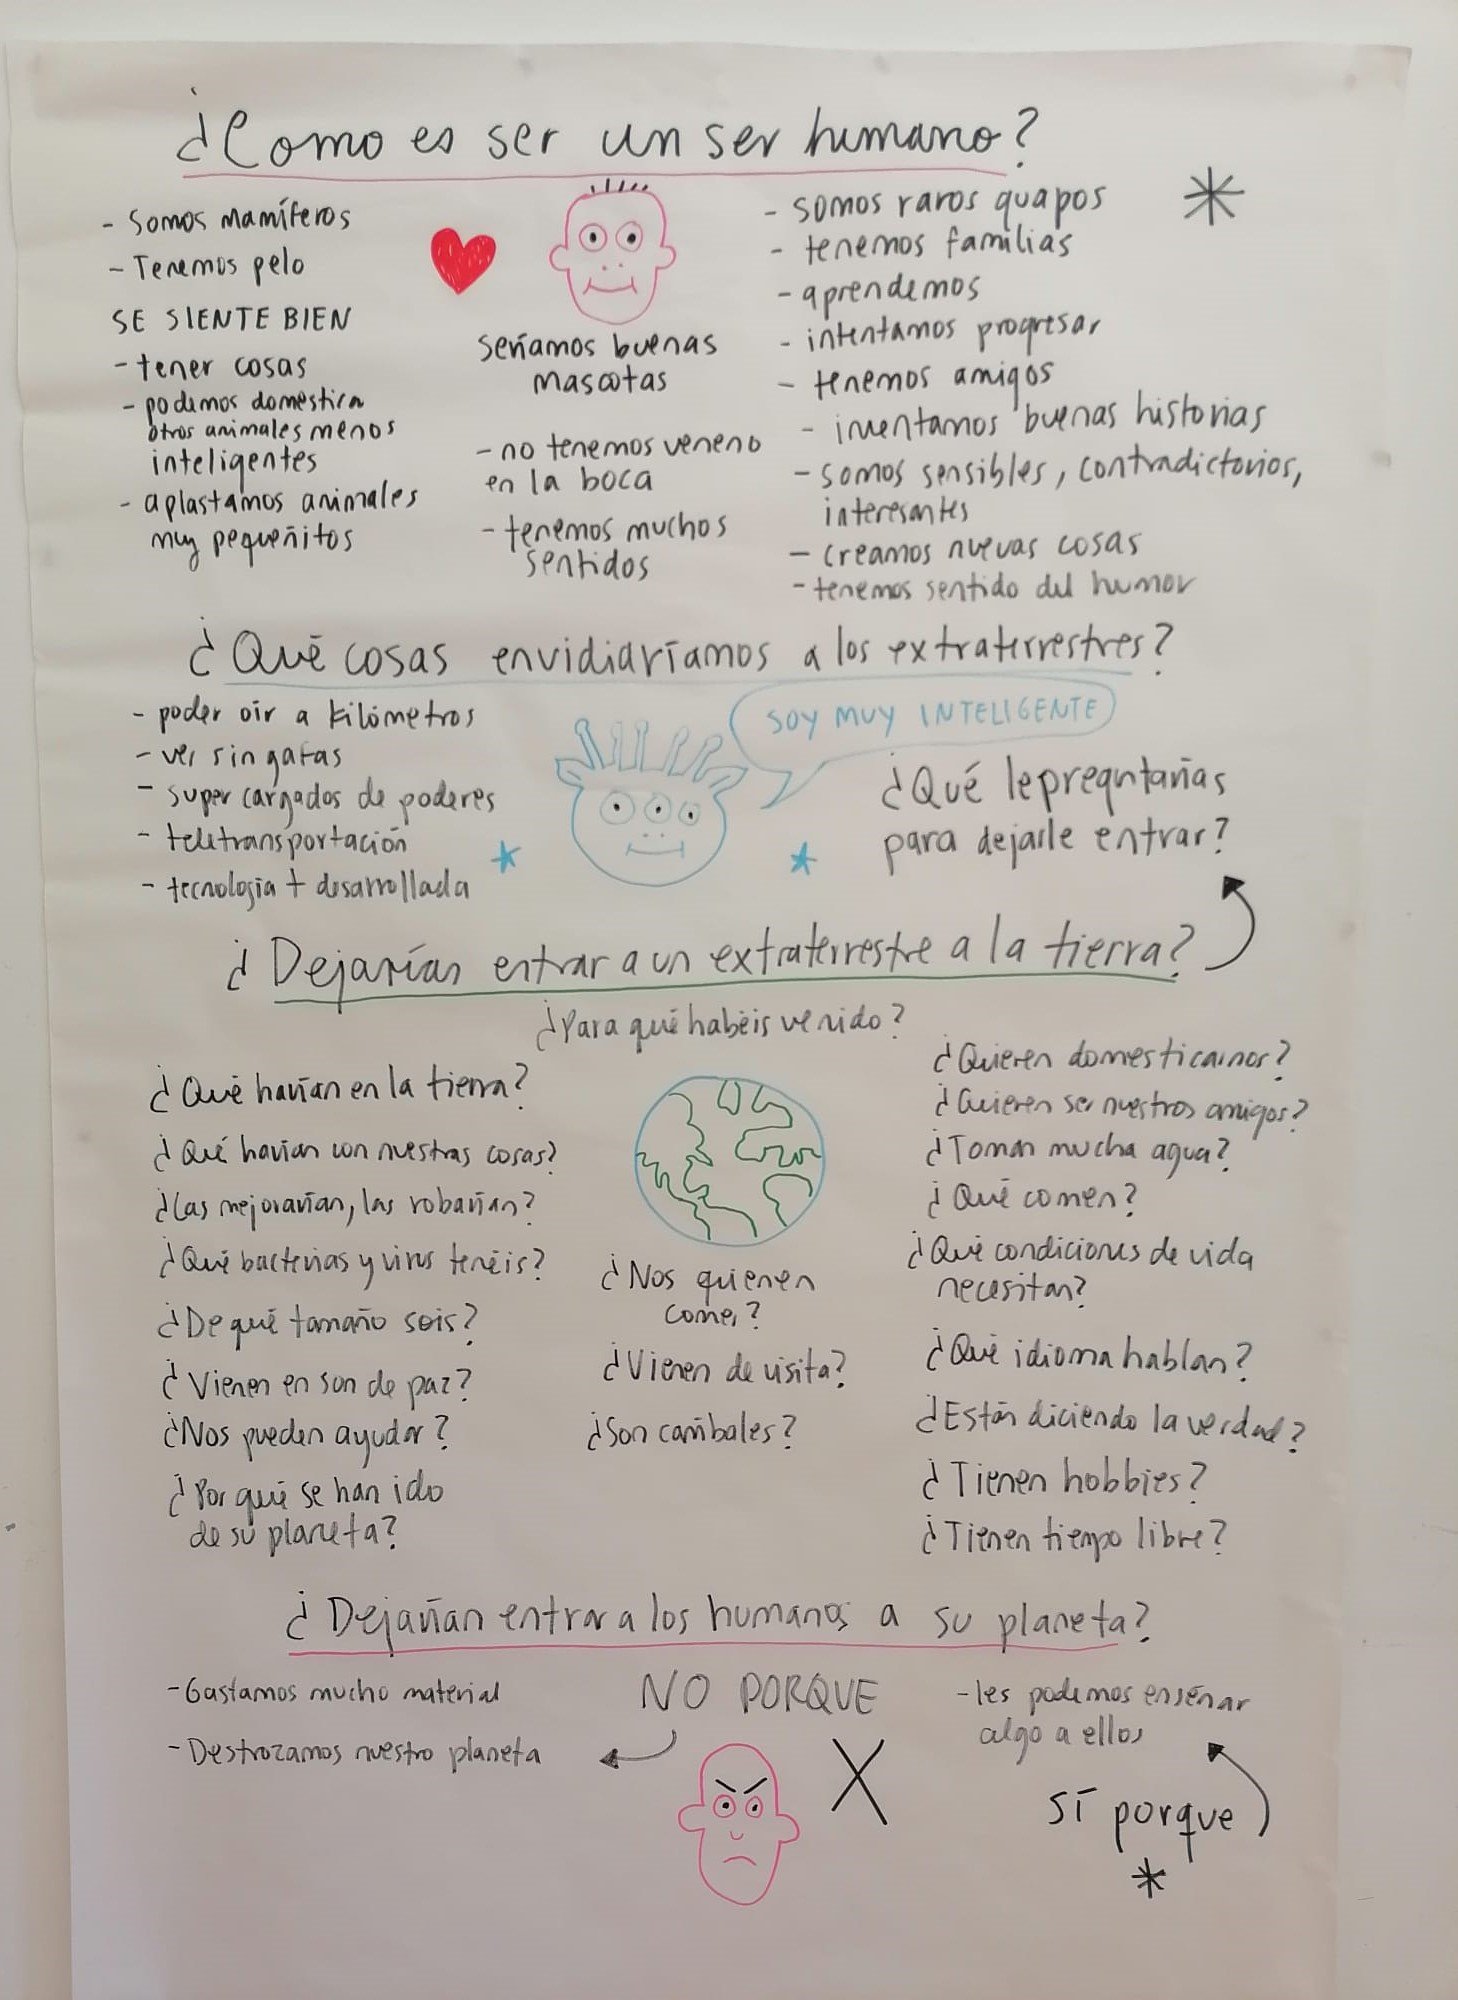 ¿Como es ser un ser humano?
- Somos Mamíferos
- Tenemos pelo
SE SIENTE BIEN
- tener cosas
- podemos domestica
otros animales menos
inteligentes
- aplastamos animales
muy pequeñitos
Seríamos buenas
mascotas
- no tenemos veneno
en la boca
- tenemos muchos
sentidos
- somos raros guapos
- tenemos familias
- aprendemos
- intentamos progresar
- tenemos amigos
- inventamos buenas historias
- somos sensibles, contradictorios,
interesantes
- creamos nuevas cosas
- tenemos sentido del humor
¿Qué cosas envidiaríamos a los extraterrestres?
- poder oir a kilómetros
- ver sin gafas
- super cargados de poderes
- teletransportación
- tecnología + desarrollada
SOY MUY INTELIGENTE
¿Qué le preguntarías
para dejarle entrar?
¿Dejarían entrar a un extraterrestre a la tierra?
¿Para qué habéis venido?
¿Qué harían en la tierra?
¿Qué harían con nuestras cosas?
¿Las mejorarían, las robarían?
¿Qué bacterias y virus tenéis?
¿De qué tamaño sois?
¿Vienen en son de paz?
¿Nos pueden ayudar?
¿Por qué se han ido
de su planeta?
¿Nos quieren
comer?
¿Vienen de visita?
¿Son caníbales?
¿Quieren domesticarnos?
¿Quieren ser nuestros amigos?
¿Toman mucha agua?
¿Qué comen?
¿Qué condiciones de vida
necesitan?
¿Qué idioma hablan?
¿Están diciendo la verdad?
¿Tienen hobbies?
¿Tienen tiempo libre?
¿Dejarían entrar a los humanos a su planeta?
- Gastamos mucho material
- Destrozamos nuestro planeta
NO PORQUE
X
- les podemos enseñar
algo a ellos
SÍ porque